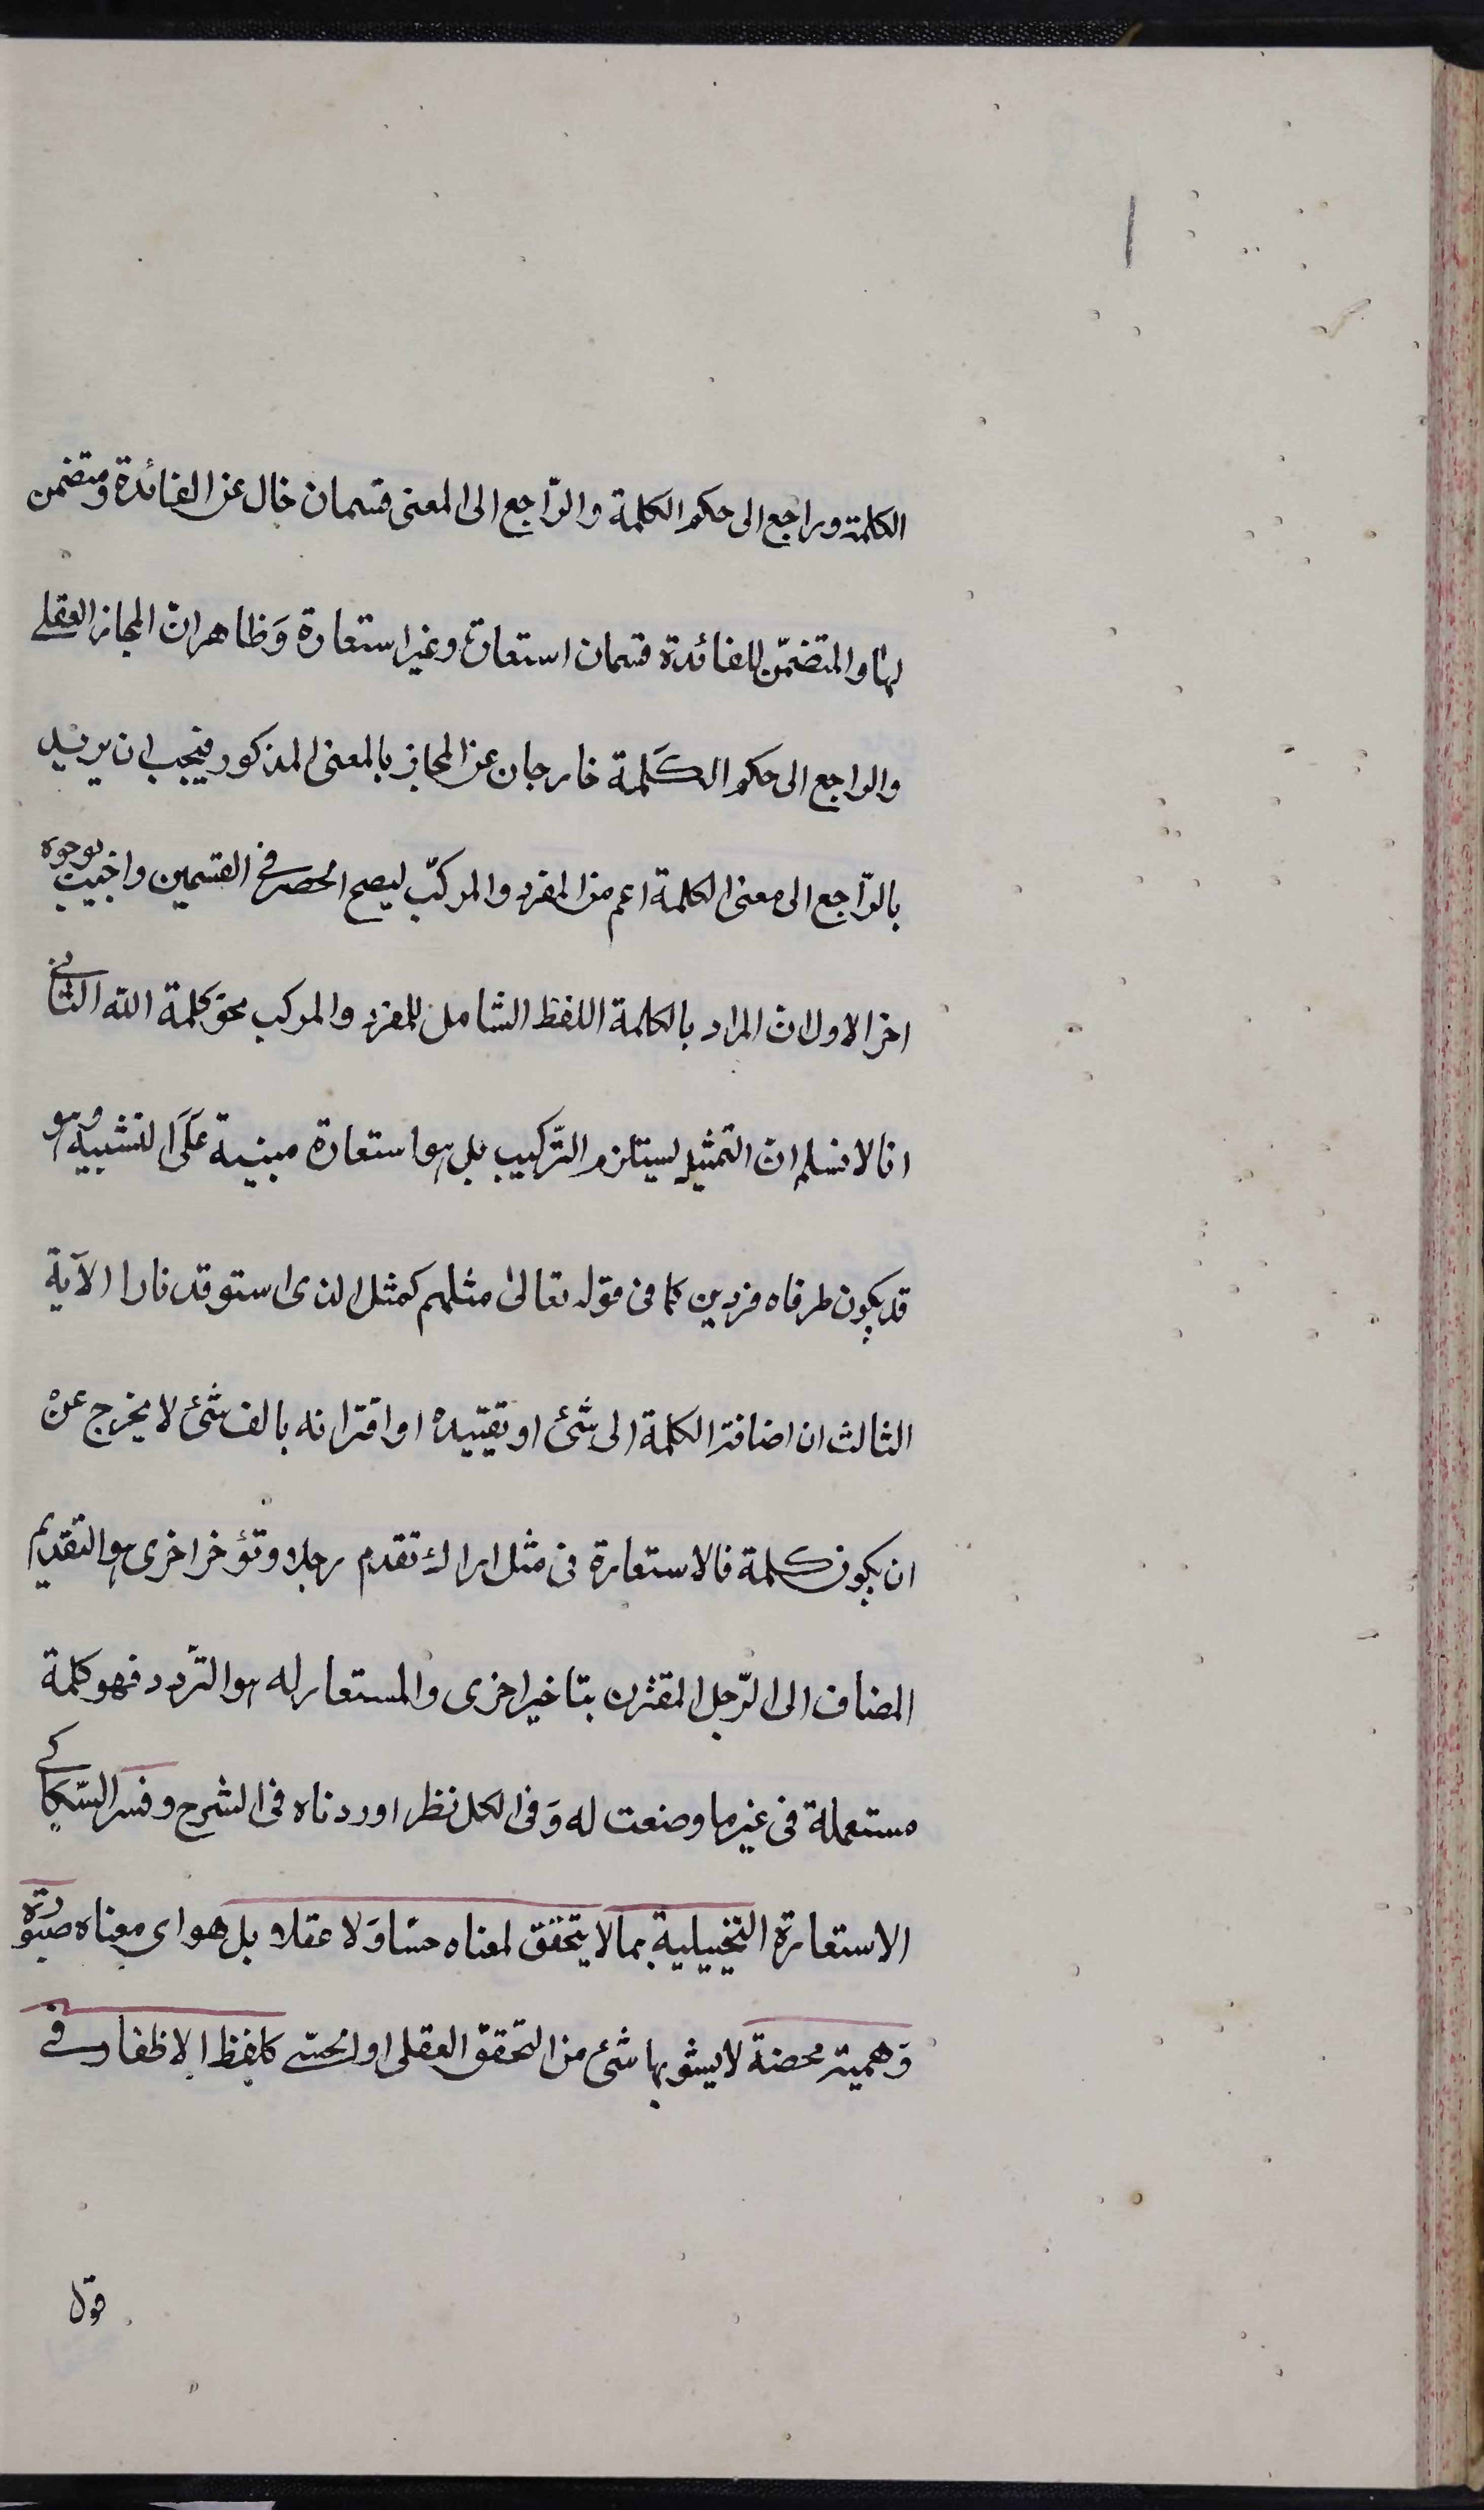 الكلمة وراجع الى حكم الكلمة والرّاجع الى المعنى قسمان خال عن الفائدة ومتضمن
لها والمتضمّن للفائدة قسمان استعارة وغير استعارة وَظاهر ان المجاز العقلى
والراجع الى حكم الكَلمة خارجان عن المجاز بالمعنى المذكور فيجب ان يريد
بالرّاجع الى معنى الكلمة اعم من المفرد والمركّب ليصح الحصر فى القسمين واجيب بوجوه
اخر الاول ان المراد بالكلمة اللفظ الشامل للمفرد والمركب نحو كلمة الله الثانى
انا لا نسلم ان التمثيل يستلزم التّركيب بل هو استعارة مبنية عَلَى التشبيه وهو
قد يكون طرفاه مفردين كما فى قوله تعالى مثلهم كمثل الذى استوقد نارا الآية
الثالث ان اضافة الكلمة الى شئ او تقييده او اقترانه بالف شئ لا يخرج عن
ان يكون كلمة فالاستعارة فى مثل اراك تقدم رجلا وتؤخر اخرى هو التقديم
المضاف الى الرّجل المقترن بتاخير اخرى والمستعار له هو التّردد فهو كلمة
مستعملة فى غير ما وضعت له وَفى الكل نظر اوردناه فى الشرح وفسر السّكاكى
الاستعارة التخييلية بما لا يتحقق لمعناه حسّا وَلا عقلا بل هو اى معناه صورة
وَهمية محضة لا يشوبها شئ من التحقق العقلى او الحسّى كلفظ الاظفار فى
قول